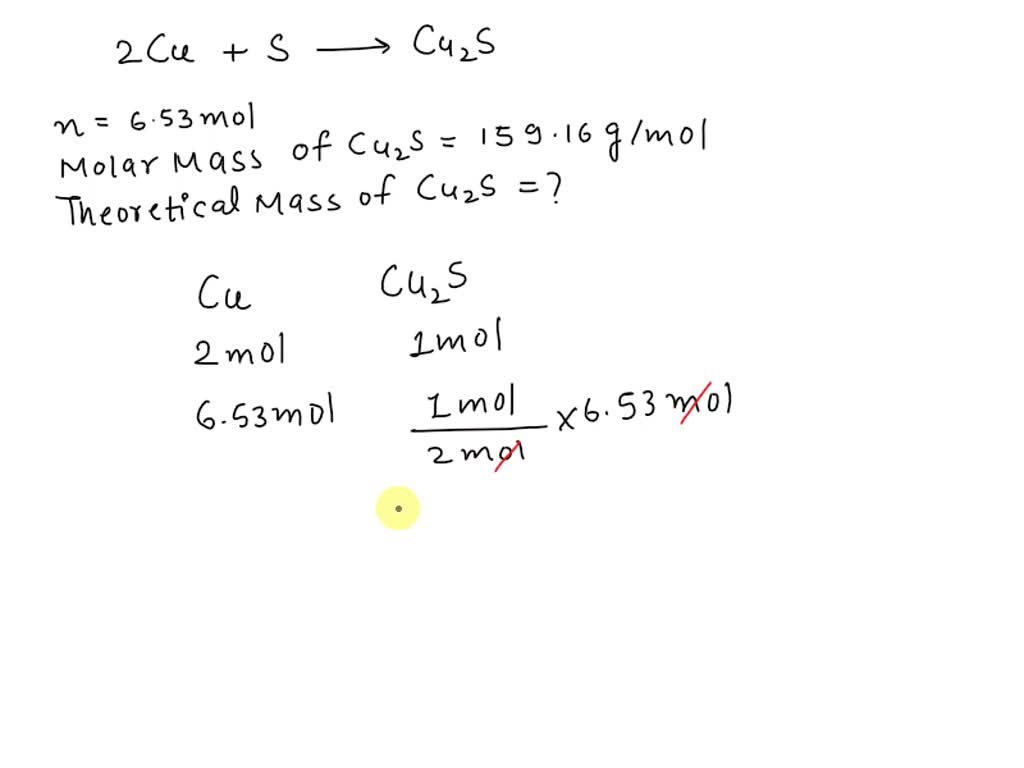 2Cu + S ⟶ Cu₂S
n = 6.53 mol
Molar Mass of Cu₂S = 159.16 g/mol
Theoretical Mass of Cu₂S = ?
Cu Cu₂S
2 mol 1 mol
6.53 mol 1 mol / 2 mol × 6.53 mol